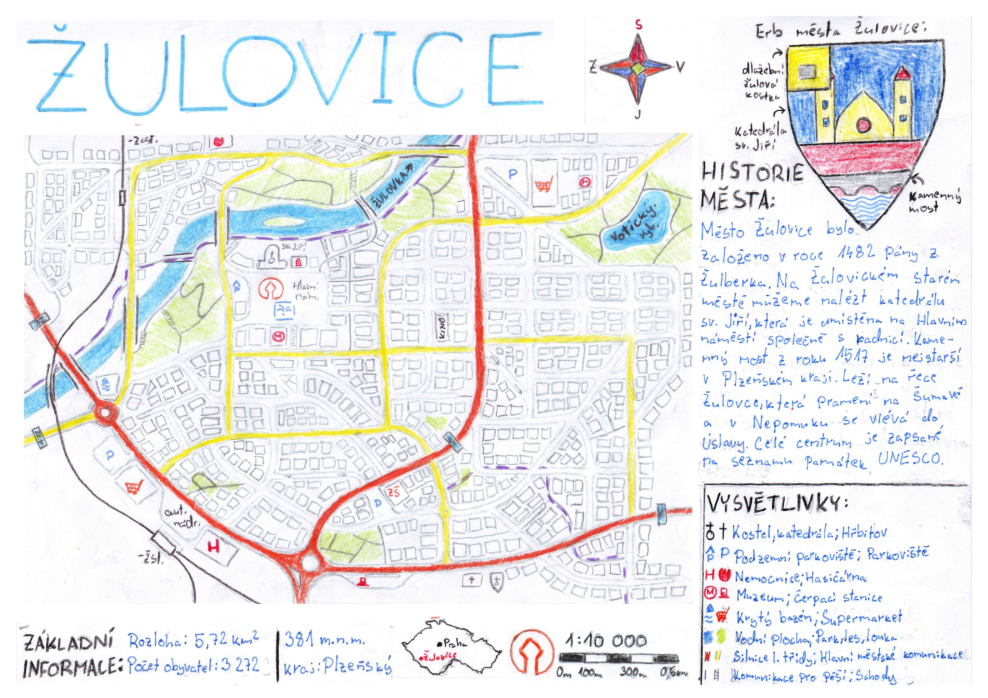 ŽULOVICE
S
Z
V
J
Erb města Žulovice:
dlažební
žulová
kostka
Katedrála
sv. Jiří
Kamenný
most
HISTORIE
MĚSTA:
Město Žulovice bylo
založeno v roce 1482 pány z
Žulberka. Na Žulovickém starém
městě můžeme nalézt katedrálu
sv. Jiří, která je umístěna na Hlavním
náměstí společně s radnicí. Kame-
nný most z roku 1517 je nejstarší
v Plzeňském kraji. Leží na řece
Žulovce, která pramení na Šumavě
a v Nepomuku se vlévá do
Úslavy. Celé centrum je zapsané
na seznamu památek UNESCO.
-zast.
ŽULOVKA
P
M
Votický
ryb.
sv. Jiří
Hlavní
nám.
M
KINO
P
P
ZŠ
aut.
nádr.
H
-žst.
VYSVĚTLIVKY:
Kostel, katedrála; Hřbitov
P P Podzemní parkoviště; Parkoviště
H Nemocnice; Hasičárna
M Muzeum; Čerpací stanice
Krytý bazén; Supermarket
Vodní plocha; Park, les, louka
Silnice I. třídy; Hlavní městské komunikace
Komunikace pro pěší; Schody
ZÁKLADNÍ
INFORMACE:
Rozloha: 5,72 km²
Počet obyvatel: 3 272
381 m.n.m.
kraj: Plzeňský
Praha
Žulovice
1:10 000
0m 100m 300m 0,5km